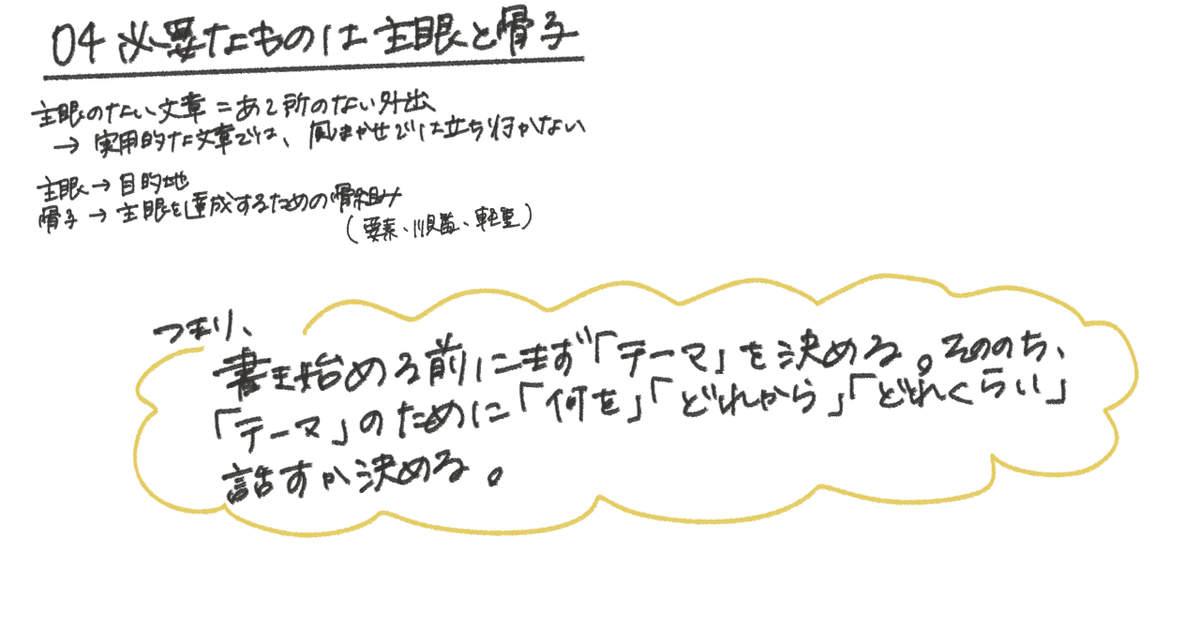 04 必要なものは主眼と骨子
主眼のない文章＝あて所のない外出
→ 実用的な文章では、風まかせでは立ち行かない
主眼→目的地
骨子→主眼を達成するための骨組み
(要素、順番、軽重)
つまり、
書き始める前にまず「テーマ」を決める。そののち、
「テーマ」のために「何を」「どれから」「どれくらい」
話すか決める。